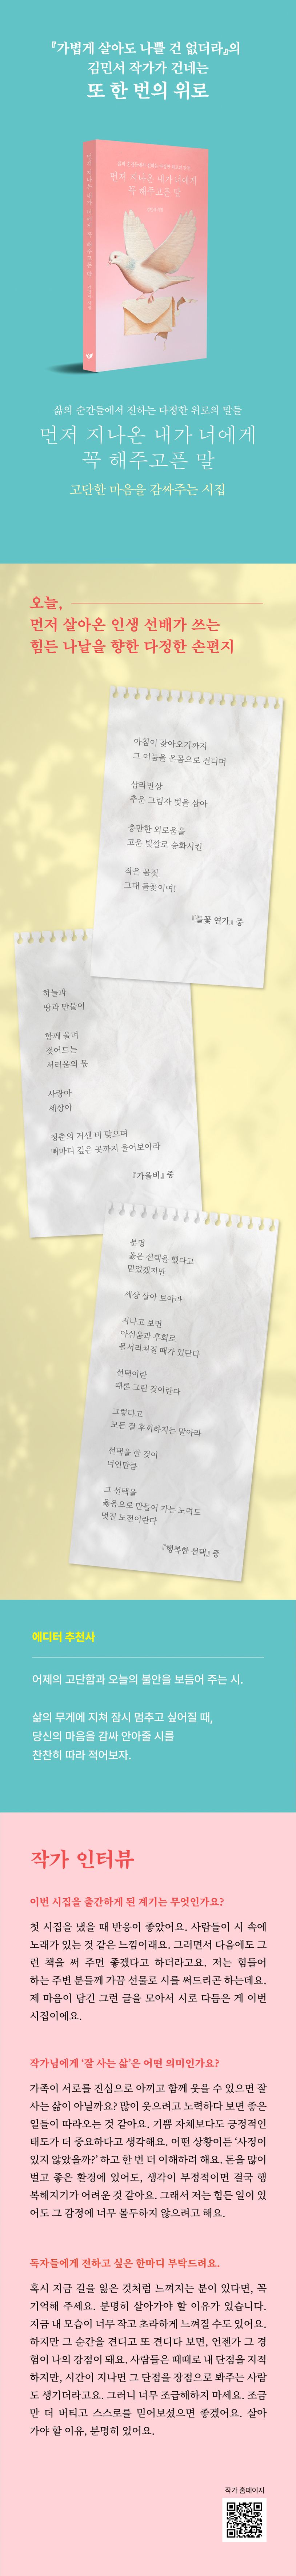 『가볍게 살아도 나쁠 건 없더라』의
김민서 작가가 건네는
또 한 번의 위로
삶의 순간들에서 전하는 다정한 위로의 말들
먼저 지나온 내가 너에게
꼭 해주고픈 말
먼저 지나온 내가 너에게 꼭 해주고픈 말
삶의 순간들에서 전하는 다정한 위로의 말들
먼저 지나온 내가 너에게
꼭 해주고픈 말
고단한 마음을 감싸주는 시집
오늘,
먼저 살아온 인생 선배가 쓰는
힘든 나날을 향한 다정한 손편지
아침이 찾아오기까지
그 어둠을 온몸으로 견디며
삼라만상
추운 그림자 벗을 삼아
충만한 외로움을
고운 빛깔로 승화시킨
작은 몸짓
그대 들꽃이여!
『들꽃 연가』 중
하늘과
땅과 만물이
함께 울며
젖어드는
서러움의 몫
사랑아
세상아
청춘의 거센 비 맞으며
뼈마디 깊은 곳까지 울어보아라
『가을비』 중
분명
옳은 선택을 했다고
믿었겠지만
세상 살아 보아라
지나고 보면
아쉬움과 후회로
몸서리쳐질 때가 있단다
선택이란
때론 그런 것이란다
그렇다고
모든 걸 후회하지는 말아라
선택을 한 것이
너인만큼
그 선택을
옳음으로 만들어 가는 노력도
멋진 도전이란다
『행복한 선택』 중
에디터 추천사
어제의 고단함과 오늘의 불안을 보듬어 주는 시.
삶의 무게에 지쳐 잠시 멈추고 싶어질 때,
당신의 마음을 감싸 안아줄 시를
찬찬히 따라 적어보자.
작가 인터뷰
이번 시집을 출간하게 된 계기는 무엇인가요?
첫 시집을 냈을 때 반응이 좋았어요. 사람들이 시 속에
노래가 있는 것 같은 느낌이래요. 그러면서 다음에도 그
런 책을 써 주면 좋겠다고 하더라고요. 저는 힘들어
하는 주변 분들께 가끔 선물로 시를 써드리곤 하는데요.
제 마음이 담긴 그런 글을 모아서 시로 다듬은 게 이번
시집이에요.
작가님에게 ‘잘 사는 삶’은 어떤 의미인가요?
가족이 서로를 진심으로 아끼고 함께 웃을 수 있으면 잘
사는 삶이 아닐까요? 많이 웃으려고 노력하다 보면 좋은
일들이 따라오는 것 같아요. 기쁨 자체보다도 긍정적인
태도가 더 중요하다고 생각해요. 어떤 상황이든 ‘사정이
있지 않았을까?’ 하고 한 번 더 이해하려 해요. 돈을 많이
벌고 좋은 환경에 있어도, 생각이 부정적이면 결국 행
복해지기가 어려운 것 같아요. 그래서 저는 힘든 일이 있
어도 그 감정에 너무 몰두하지 않으려고 해요.
독자들에게 전하고 싶은 한마디 부탁드려요.
혹시 지금 길을 잃은 것처럼 느껴지는 분이 있다면, 꼭
기억해 주세요. 분명히 살아가야 할 이유가 있습니다.
지금 내 모습이 너무 작고 초라하게 느껴질 수도 있어요.
하지만 그 순간을 견디고 또 견디다 보면, 언젠가 그 경
험이 나의 강점이 돼요. 사람들은 때때로 내 단점을 지적
하지만, 시간이 지나면 그 단점을 장점으로 봐주는 사람
도 생기더라고요. 그러니 너무 조급해하지 마세요. 조금
만 더 버티고 스스로를 믿어보셨으면 좋겠어요. 살아
가야 할 이유, 분명히 있어요.
작가 홈페이지